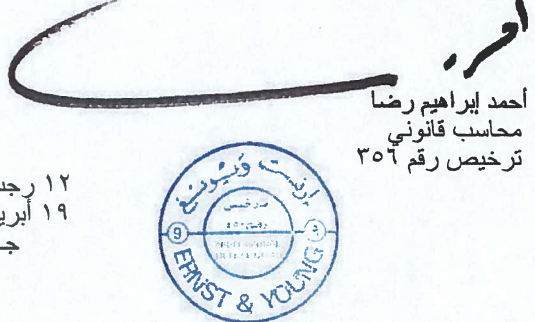 أحمد إبراهيم رضا
محاسب قانوني
ترخيص رقم ٣٥٦
١٢ رجب
١٩ أبريل
إرنست ويونغ
ترخيص
ERNST & YOUNG